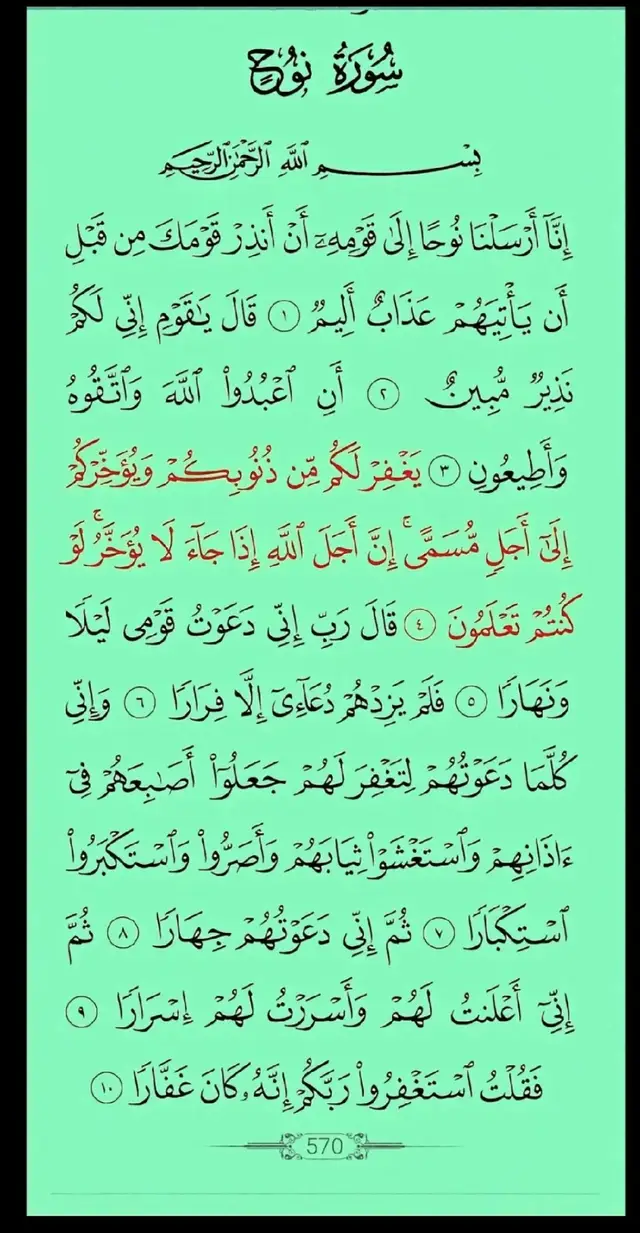 سُورَةُ نُوحٍ
بِسْمِ ٱللَّهِ ٱلرَّحْمَٰنِ ٱلرَّحِيمِ
إِنَّآ أَرْسَلْنَا نُوحًا إِلَىٰ قَوْمِهِۦٓ أَنْ أَنذِرْ قَوْمَكَ مِن قَبْلِ
أَن يَأْتِيَهُمْ عَذَابٌ أَلِيمٌ ١ قَالَ يَٰقَوْمِ إِنِّى لَكُمْ
نَذِيرٌ مُّبِينٌ ٢ أَنِ ٱعْبُدُوا۟ ٱللَّهَ وَٱتَّقُوهُ
وَأَطِيعُونِ ٣ يَغْفِرْ لَكُم مِّن ذُنُوبِكُمْ وَيُؤَخِّرْكُمْ
إِلَىٰٓ أَجَلٍ مُّسَمًّى ۚ إِنَّ أَجَلَ ٱللَّهِ إِذَا جَآءَ لَا يُؤَخَّرُ ۖ لَوْ
كُنتُمْ تَعْلَمُونَ ٤ قَالَ رَبِّ إِنِّى دَعَوْتُ قَوْمِى لَيْلًا
وَنَهَارًا ٥ فَلَمْ يَزِدْهُمْ دُعَآءِىٓ إِلَّا فِرَارًا ٦ وَإِنِّى
كُلَّمَا دَعَوْتُهُمْ لِتَغْفِرَ لَهُمْ جَعَلُوٓا۟ أَصَٰبِعَهُمْ فِىٓ
ءَاذَانِهِمْ وَٱسْتَغْشَوْا۟ ثِيَابَهُمْ وَأَصَرُّوا۟ وَٱسْتَكْبَرُوا۟
ٱسْتِكْبَارًا ٧ ثُمَّ إِنِّى دَعَوْتُهُمْ جِهَارًا ٨ ثُمَّ
إِنِّىٓ أَعْلَنتُ لَهُمْ وَأَسْرَرْتُ لَهُمْ إِسْرَارًا ٩
فَقُلْتُ ٱسْتَغْفِرُوا۟ رَبَّكُمْ إِنَّهُۥ كَانَ غَفَّارًا ١٠
570